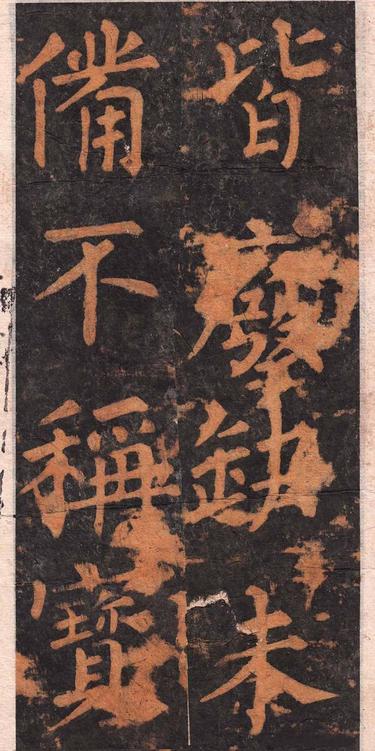 皆廢缺未
備不稱寶